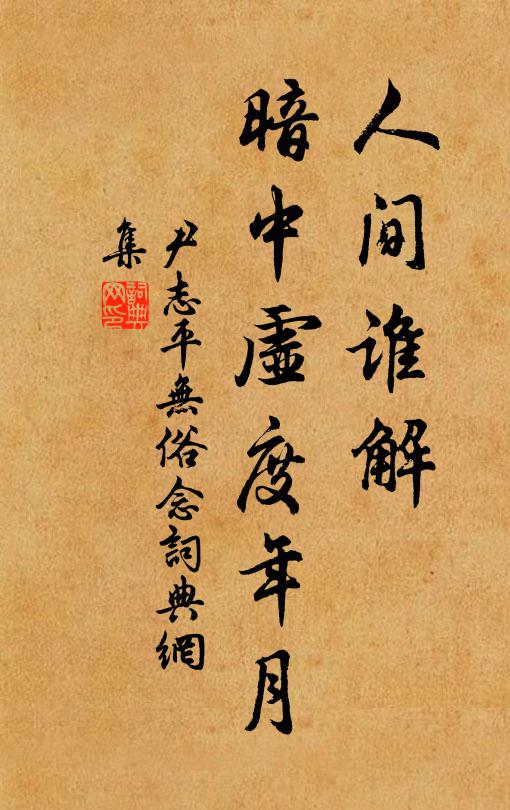 人间谁解
暗中虚度年月
尹志平無俗念詞典網
集
詞典网印